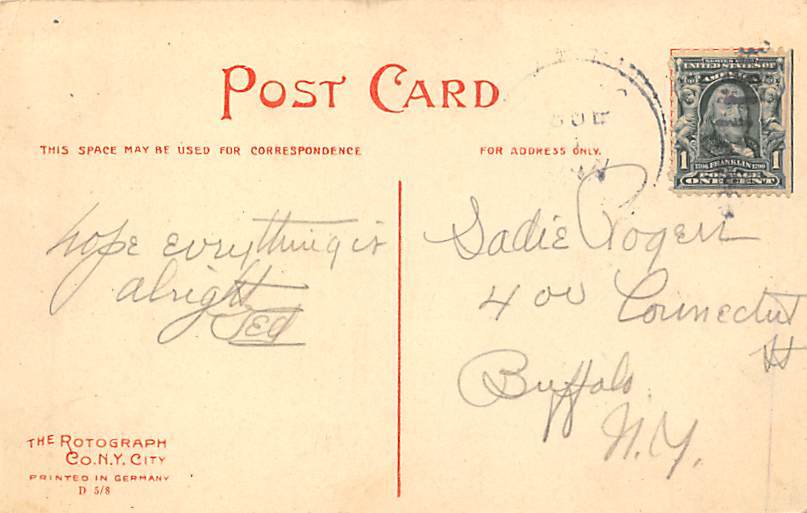 POST CARD
THIS SPACE MAY BE USED FOR CORRESPONDENCE
FOR ADDRESS ONLY.
SERIES 1902
UNITED STATES OF
AMERICA
1 1706 FRANKLIN 1790 1
POSTAGE
ONE CENT
hope evrything is
alright
Ted
Sadie Rogers
400 Connectut
St
Buffalo
N.Y.
THE ROTOGRAPH
CO. N.Y. CITY
PRINTED IN GERMANY
D 5/8